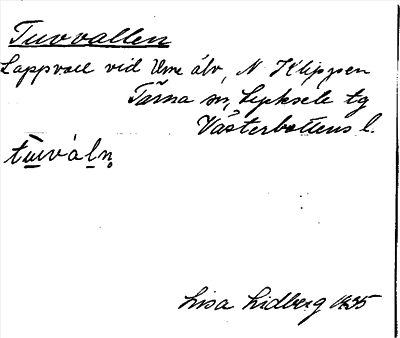 Tuvvallen
Lappvall vid Ume älv, N Klippen
Tärna sn, Lycksele tg
Västerbottens l.
tuvváln
Lisa Lidberg 1935